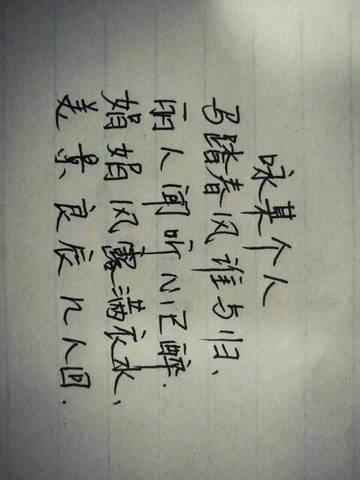 咏某个人
马踏春风谁与归、
丽人闻听心已醉.
娟娟风露满衣冰、
美景良辰几人回.